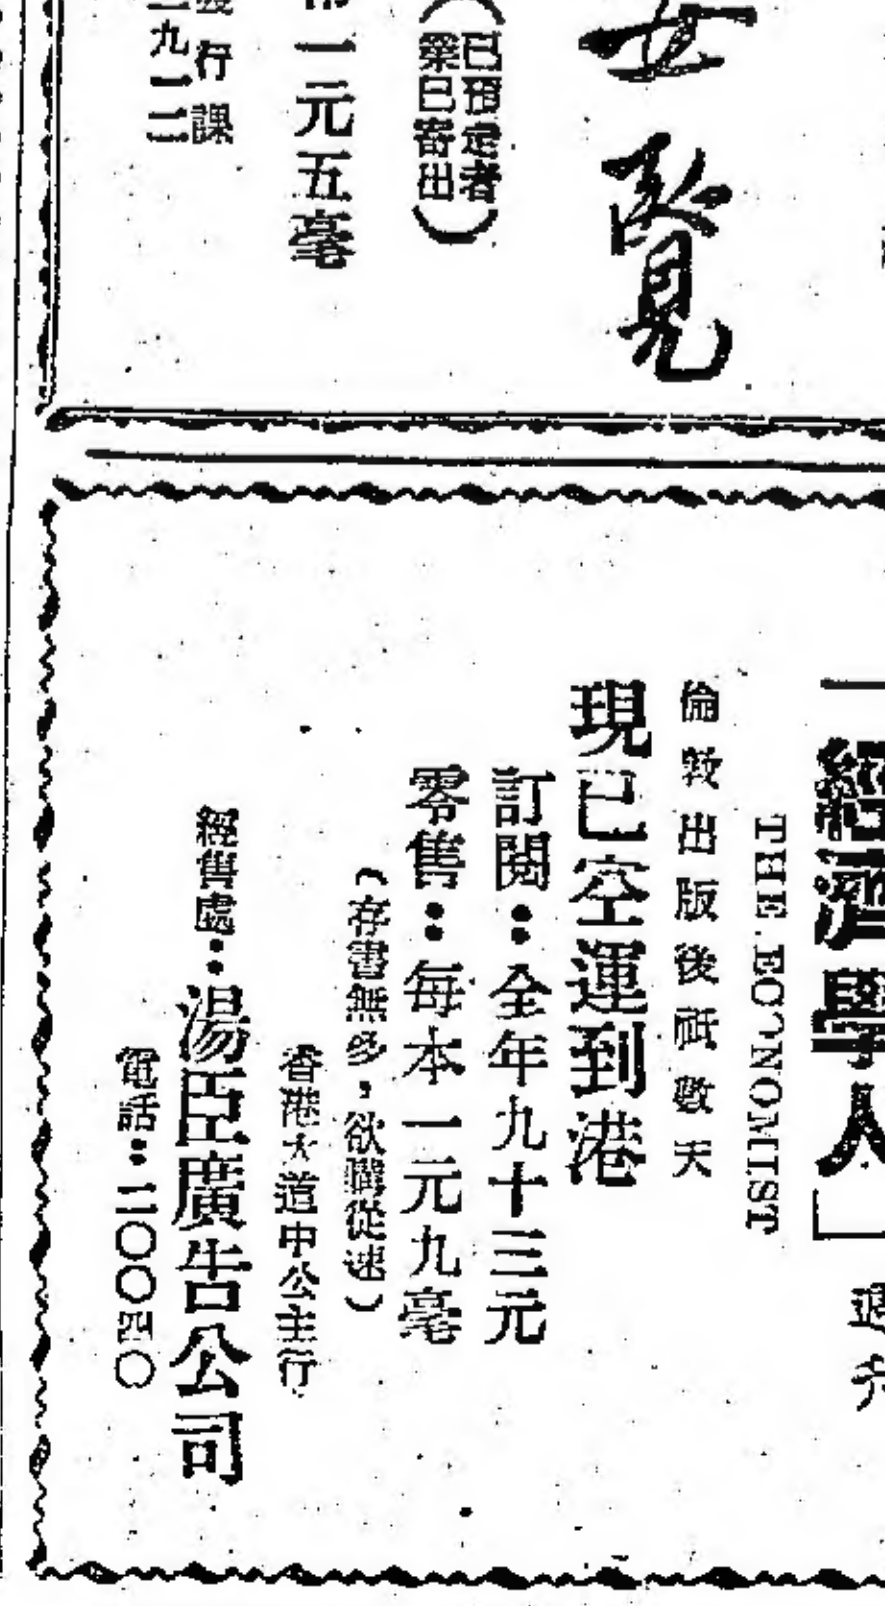 覽
(已預定者
業已寄出)
一元五毫
行課
九一二
「經濟學人」
週刊
THE ECONOMIST
倫敦出版後祇數天
現已空運到港
訂閱：全年九十三元
零售：每本一元九毫
(存書無多，欲購從速)
香港大道中公主行
經售處：湯臣廣告公司
電話：二〇〇四〇